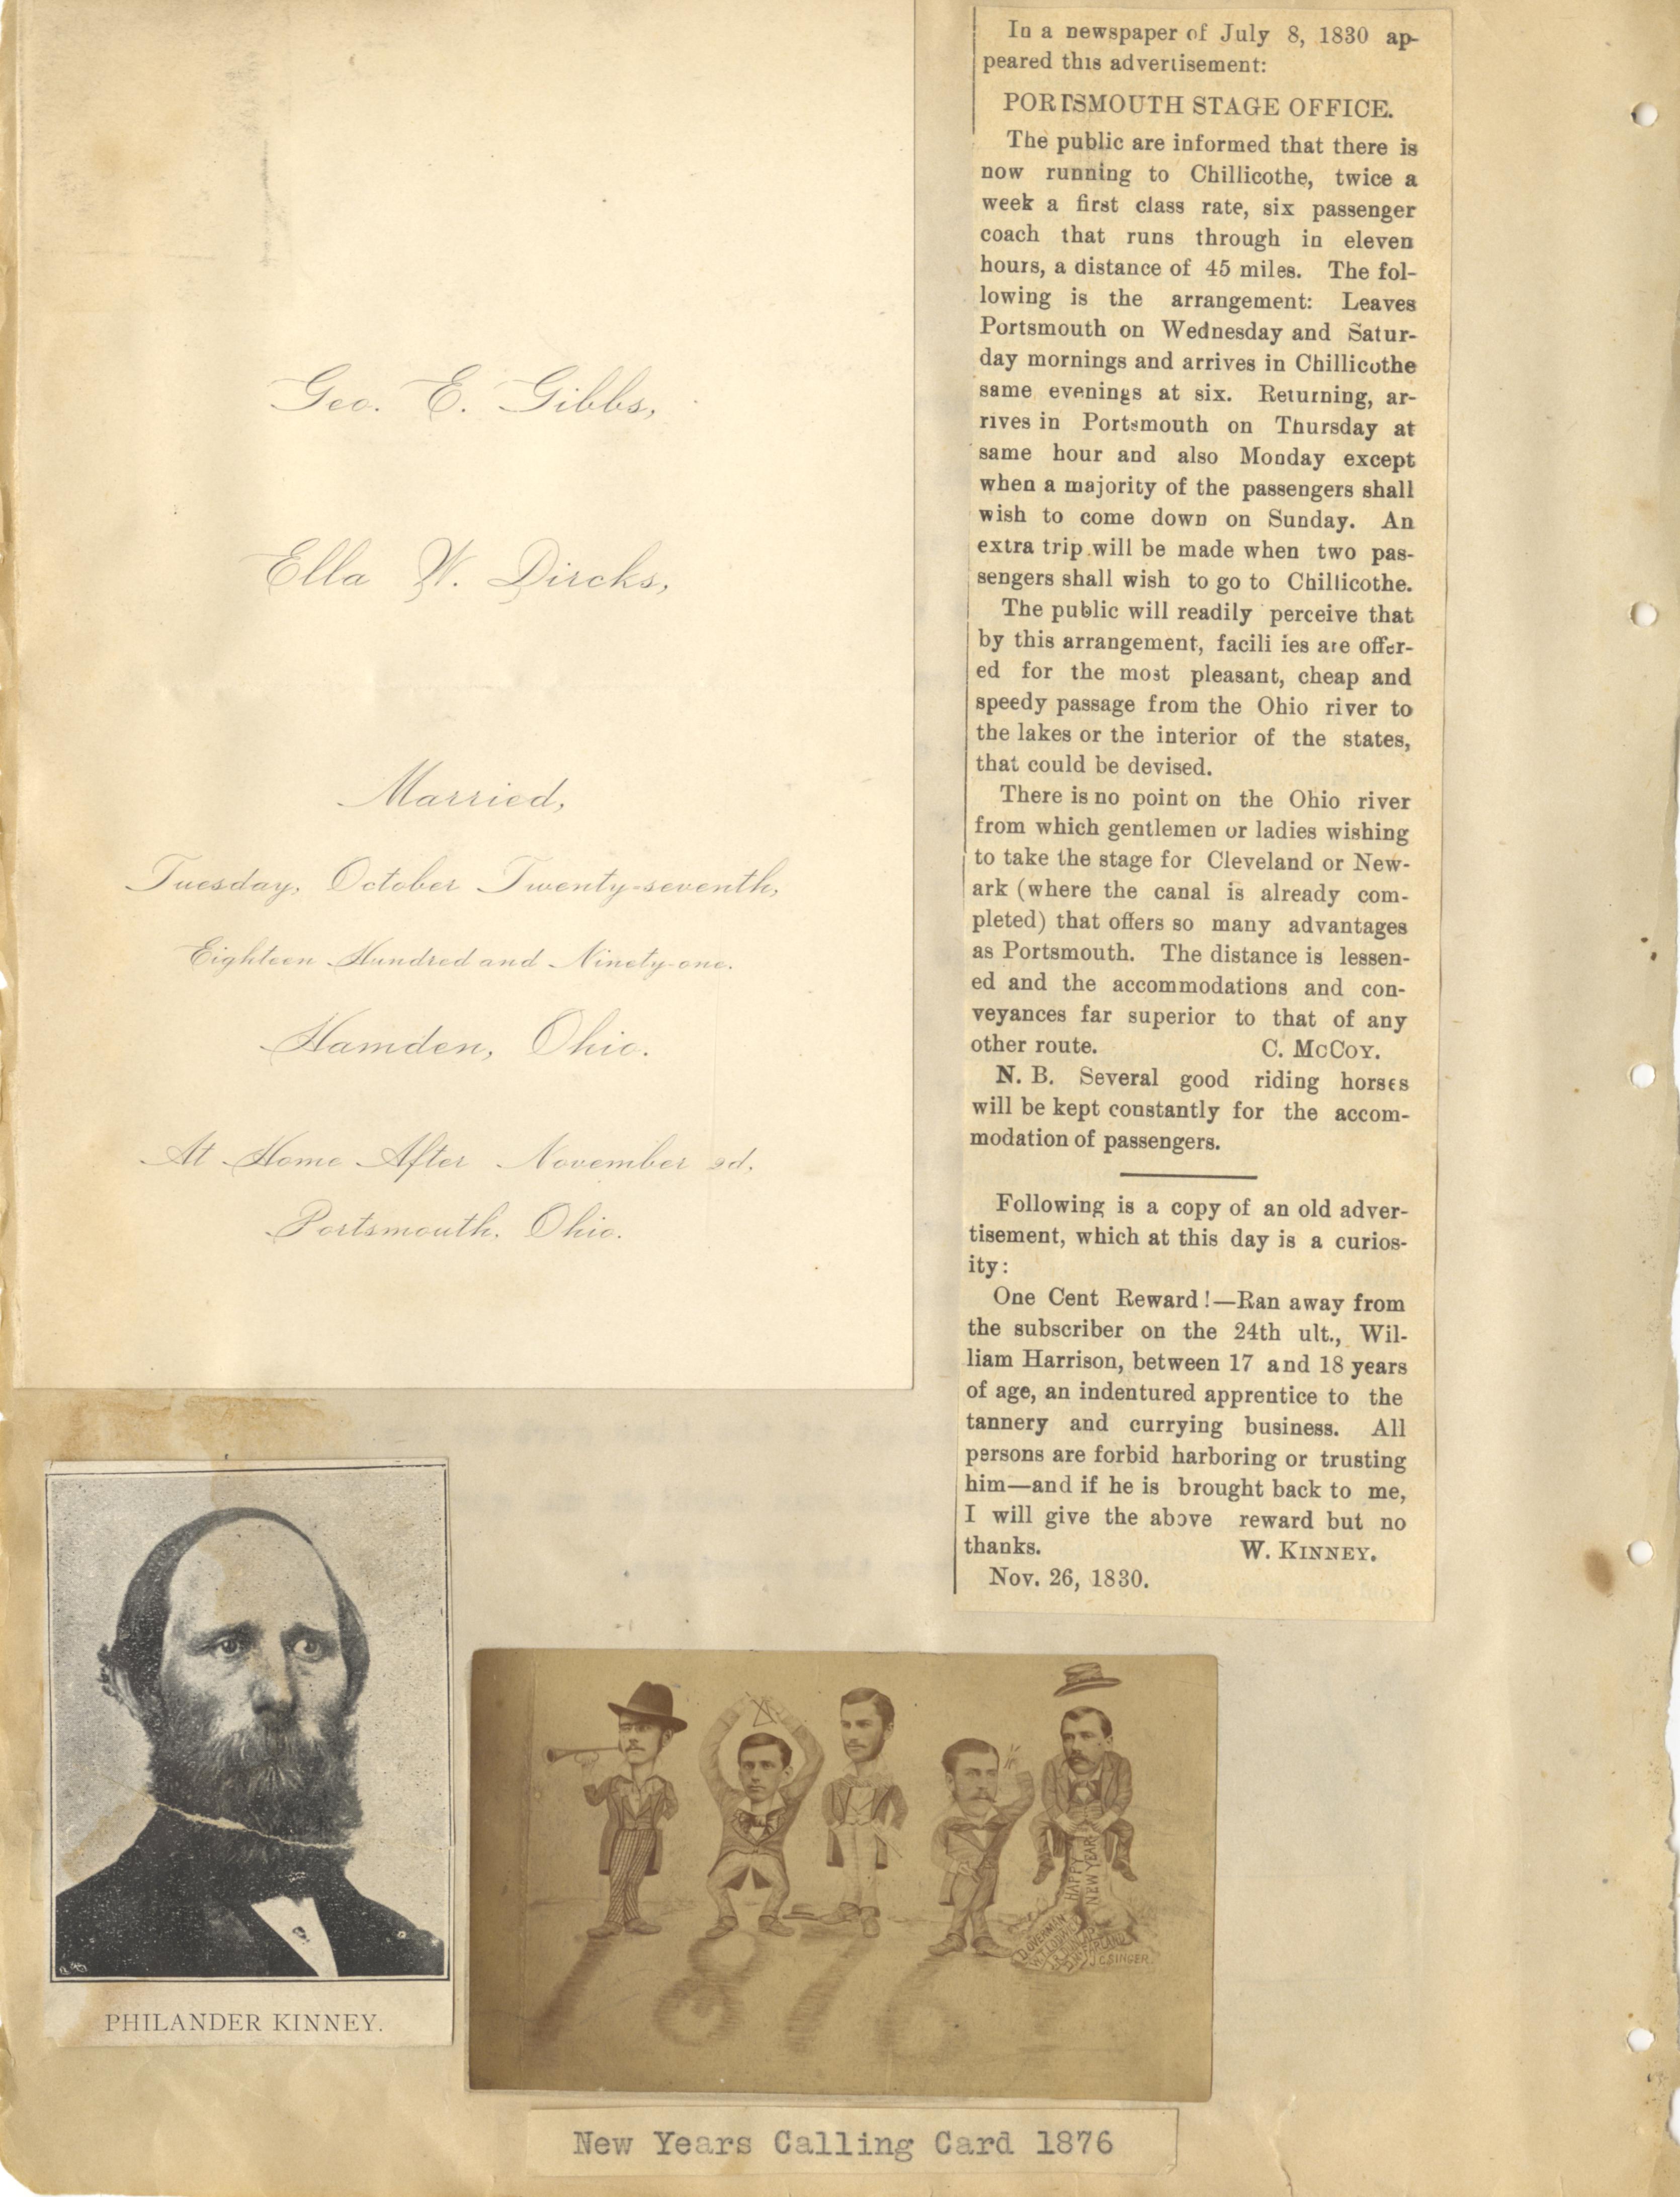 Geo. E. Gibbs,
Ella W. Dircks,
Married,
Tuesday, October Twenty-seventh,
Eighteen Hundred and Ninety-one.
Hamden, Ohio.
At Home After November 2d,
Portsmouth, Ohio.
In a newspaper of July 8, 1830 ap-
peared this advertisement:
PORTSMOUTH STAGE OFFICE.
The public are informed that there is
now running to Chillicothe, twice a
week a first class rate, six passenger
coach that runs through in eleven
hours, a distance of 45 miles. The fol-
lowing is the arrangement: Leaves
Portsmouth on Wednesday and Satur-
day mornings and arrives in Chillicothe
same evenings at six. Returning, ar-
rives in Portsmouth on Thursday at
same hour and also Monday except
when a majority of the passengers shall
wish to come down on Sunday. An
extra trip will be made when two pas-
sengers shall wish to go to Chillicothe.
The public will readily perceive that
by this arrangement, facili ies are offer-
ed for the most pleasant, cheap and
speedy passage from the Ohio river to
the lakes or the interior of the states,
that could be devised.
There is no point on the Ohio river
from which gentlemen or ladies wishing
to take the stage for Cleveland or New-
ark (where the canal is already com-
pleted) that offers so many advantages
as Portsmouth. The distance is lessen-
ed and the accommodations and con-
veyances far superior to that of any
other route. C. McCOY.
N. B. Several good riding horses
will be kept constantly for the accom-
modation of passengers.
Following is a copy of an old adver-
tisement, which at this day is a curios-
ity:
One Cent Reward!—Ran away from
the subscriber on the 24th ult., Wil-
liam Harrison, between 17 and 18 years
of age, an indentured apprentice to the
tannery and currying business. All
persons are forbid harboring or trusting
him—and if he is brought back to me,
I will give the above reward but no
thanks. W. KINNEY.
Nov. 26, 1830.
PHILANDER KINNEY.
HAPPY
NEW YEAR
D. OVERMAN
J.C. SINGER.
1876
New Years Calling Card 1876